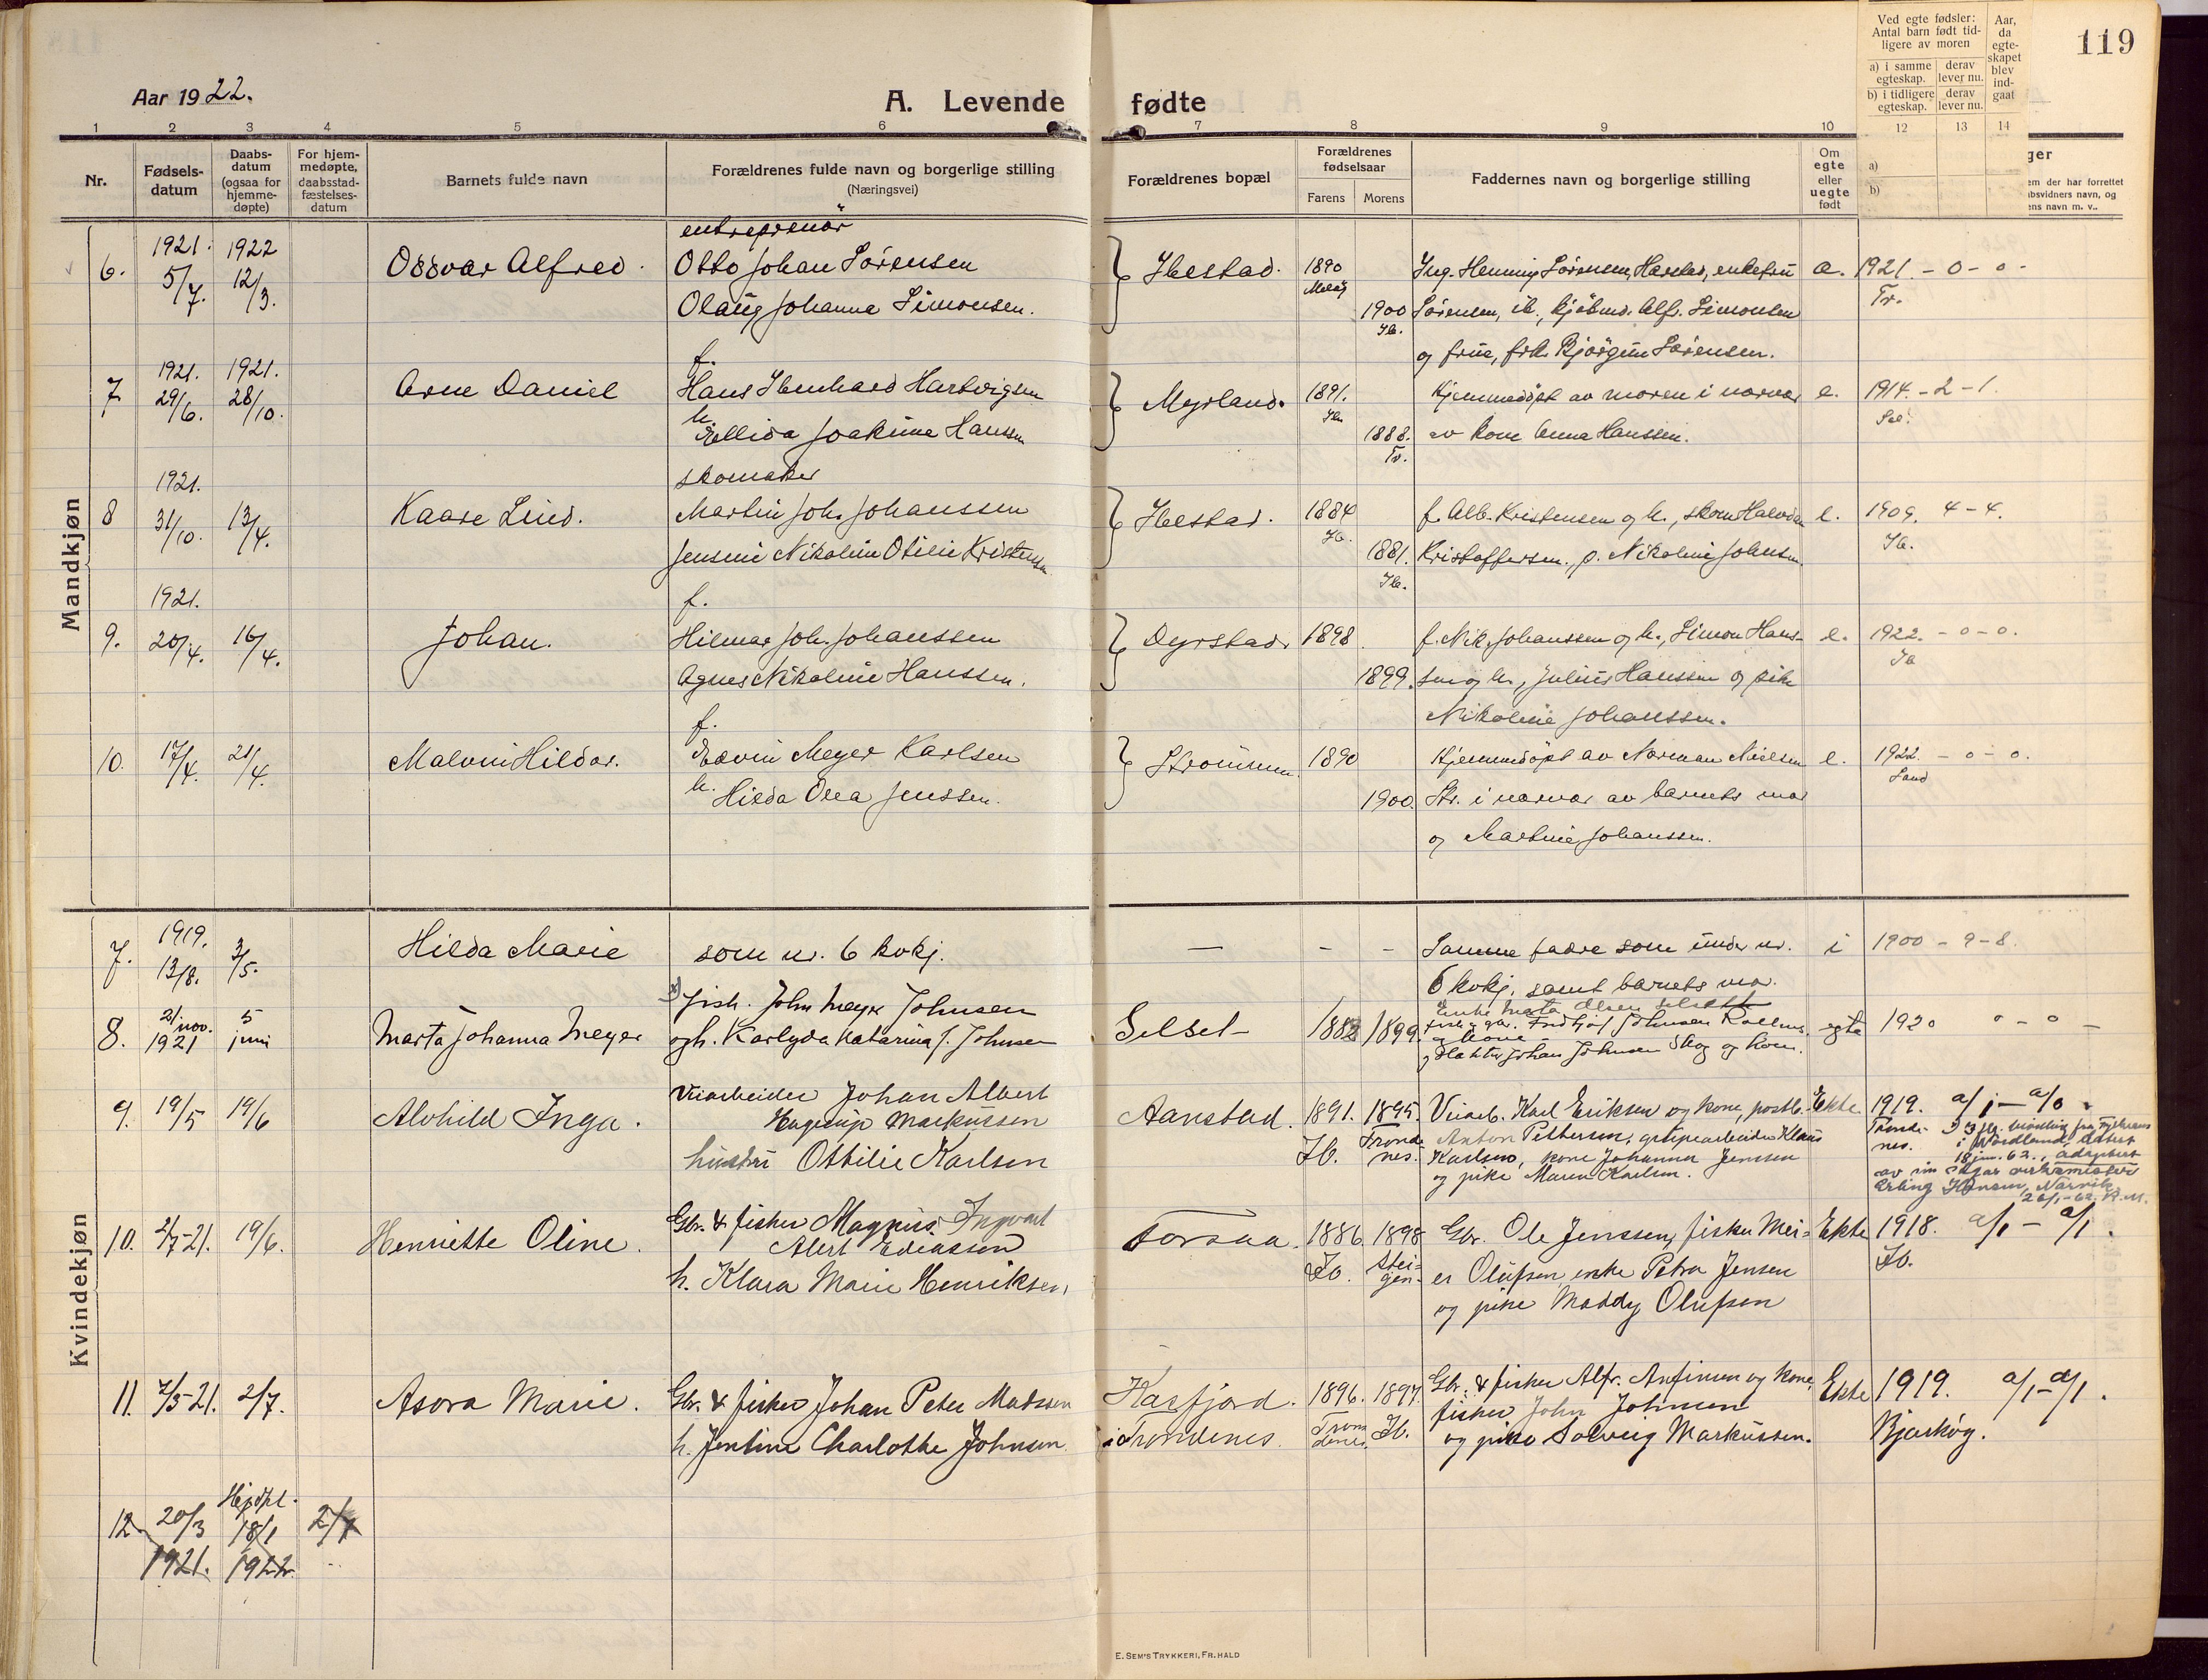 119
Aar 1922.
A. Levende fødte
1 2 3 4 5 6 7 8 9 10 12 13 14
Ved egte fødsler: Antal barn født tidligere av moren
a) i samme egteskap. derav lever nu.
b) i tidligere egteskap. derav lever nu.
Aar, da egteskapet blev indgaat
Nr.
Fødselsdatum
Daabsdatum (ogsaa for hjemmedøpte)
For hjemmedøpte, daabsstadfæstelsesdatum
Barnets fulde navn
Forældrenes fulde navn og borgerlige stilling
(Næringsvei)
Forældrenes bopæl
Forældrenes fødselsaar
Farens Morens
Faddernes navn og borgerlige stilling
Om egte eller uegte født
a)
b)
ger
em der har forrettet
absvidners navn, og
ens navn m. v..
Mandkjøn
entreprenør
6. 1921. 5/7. 1922 12/3. Ossvar Alfred. Otto Johan Sørensen
Olaug Johanne Simonsen.
Ibestad. 1890 1900 Ib.
Ing. Henning Sørensen, Harstad, enkefru
Sørensen, ib., kjøbmd. Alf. Simonsen
og frue, frk. Bjørgun Sørensen.
1921 - 0 - 0 -
Tr.
f.
7 1921. 29/6. 1921. 28/10. Arne Daniel Hans Ibenhard Hartvigsen
h. Ellida Joakime Hanssen
Myrland. 1891. Ib. 1888. Tr.
Hjemmedøpt av moren i nærvær
av kone Anna Hanssen.
e. 1914. - 2 - 1.
skomaker
8 1921. 31/10. 13/4. Kaare Lind. Martin Joh. Johanssen
Jensine Nikoline Otilie Kristensen
Ibestad. 1884 Ib. 1881. Ib.
f. Alb. Kristensen og h., skom Halvdan
Kristoffersen, p. Nikoline Johansen.
e. 1909. 4 - 4.
Ib.
f.
9. 1921. 20/4. 16/4. Johan. Hilmar Joh. Johanssen
Agnes Nikoline Hanssen.
Dyrstad. 1898 1899.
f. Nik. Johanssen og h., Simon Hans-
sen og h., Julius Hanssen og pike
Nikoline Johanssen.
e. 1922. - 0 - 0.
f.
10. 17/4. 21/4. Malvin Hildor. Edvin Meyer Karlsen
h. Hilda Olea Jenssen.
Strømmen. 1890 1900.
Hjemmedøpt av Norman Nielsen
Str. i nærvær av barnets mor
og Martine Johanssen.
e. 1922. - 0 - 0.
Sand
Kvindekjøn
7. 1919. 13/8. 3/5. Hilda Marie som nr. 6 kvkj.
— - -
Samme faddre som under nr.
6 kvkj. samt barnets mor.
i 1900 - 9 - 8.
8. 21/nov. 1921 5 juni Marta Johanna Meyer fisk. John Meyer Johnsen
og h. Karlyda Katarina J. Johnsen
Selset 1882 1899
Enke Marta Olsen Selset
og kone
Johan Johnsen Skog og kone.
egte 1920 0 - 0 -
9. 19/5 19/6 Alvhild Inga. Veiarbeider Johan Albert
Hagerup Markussen
hustru Ottilie Karlsen
Aanstad. 1891. Ib. 1895. Trondenes.
Veiarb. Karl Eriksen og kone, postb.
Anton Pettersen, gruvearbeider Klaus
Karlsen, kone Johanna Jenssen
og pike Maren Karlsen.
Ekte. 1919. a/1 — a/0.
Trondenes. flg. melding fra Fylkesm.
i Nordland, datert
18 jan. 62., adoptert
av sin
Erling Hansen, Narvik.
10. 2/7-21. 19/6. Henriette Oline. Gbr. & fisker Magnus Ingvart
Alert Ediassen
h. Klara Marie Henriksen,
Forsaa. 1886. Ib. 1898 Steigen.
Gbr. Ole Jenssen, fisker Mei-
er Olufsen, enke Petra Jensen
og pike Maddy Olufsen
Ekte 1918. a/1 — a/1.
Ib.
11. 7/3-21. 2/7. Asora Marie. Gbr. & fisker Johan Peter Madssen
h. Jentine Charlotte Johnsen.
Kasfjord. i Trondenes. 1896. Trondenes. 1897. Ib.
Gbr. & fisker Alfr. Anfinsen og kone,
fisker John Johnsen
og pike Solveig Markussen.
Ekte 1919. a/1 - a/1.
Bjarkøy.
12. 20/3 1921. Hjdpt. 18/1 1922. 2/7
E. SEM'S TRYKKERI, FR.HALD